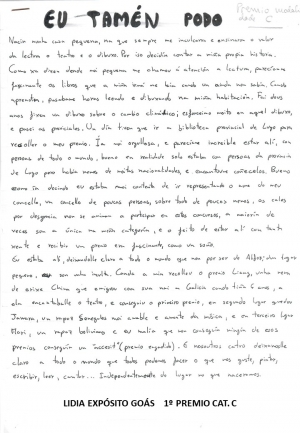 EU TAMÉN PODO
Premio modalidade C
Nacín nunha casa pequena, na que sempre me inculcaron e ensinaron o valor
da lectura o teatro e o dibuxo. Por iso decidín contar a miña propia historia.
Como xa dixen dende moi pequena me chamou a atención a lectura, parecíanme
fascinante os libros que a miña nai me lía cando eu aínda non sabía. Cando
aprendín, pasábame horas lendo e dibuxando na miña habitación. Fai dous
anos fixen un dibuxo sobre o cambio climático; esforceime moito en aquel dibuxo,
e pasei ás provinciais. Un día tiven que ir a biblioteca provincial de Lugo para
recoller o meu premio. Ía moi orgullosa, e parecíame increíble estar alí, con
persoas de todo o mundo, bueno en realidade solo estaba con persoas da provincia
de Lugo pero había nenos de moitas nacionalidades e encantoume coñecelos. Bueno
eu estaba moi contenta de ir representando o nome do meu
concello, un concello de poucas persoas, sobre todo de poucos nenos, os cales
por desgracia non se animan a participar en estes concursos, a maioría de
veces son a única na miña categoría, e o feito de estar alí con tanta
xente e recibir un premio era fascinante, como un soño.
Eu estaba alí, deixándolle claro a todo o mundo que non por ser de Alfoz, un lugar
pequeno, son unha inútil. Cando a min recolleu o premio Liang, unha nena
de orixe China que emigrou con súa nai a Galicia cando tiña 6 anos, a
ela encantáballe o teatro, e conseguiu o primeiro premio, en segundo lugar quedou
Jamara, un rapaz Senegalés moi amable e amante da música, e en terceiro lugar
Flori, un rapaz boliviano e eu
premios conseguín un incesit (premio engadido). E nosoutros catro deixámoslle
claro a todo o mundo que todos podemos facer o que nos guste, pintar,
escribir, leer, cantar... Independentemente do lugar no que nacemos.
LIDIA EXPÓSITO GOÁS 1º PREMIO CAT. C